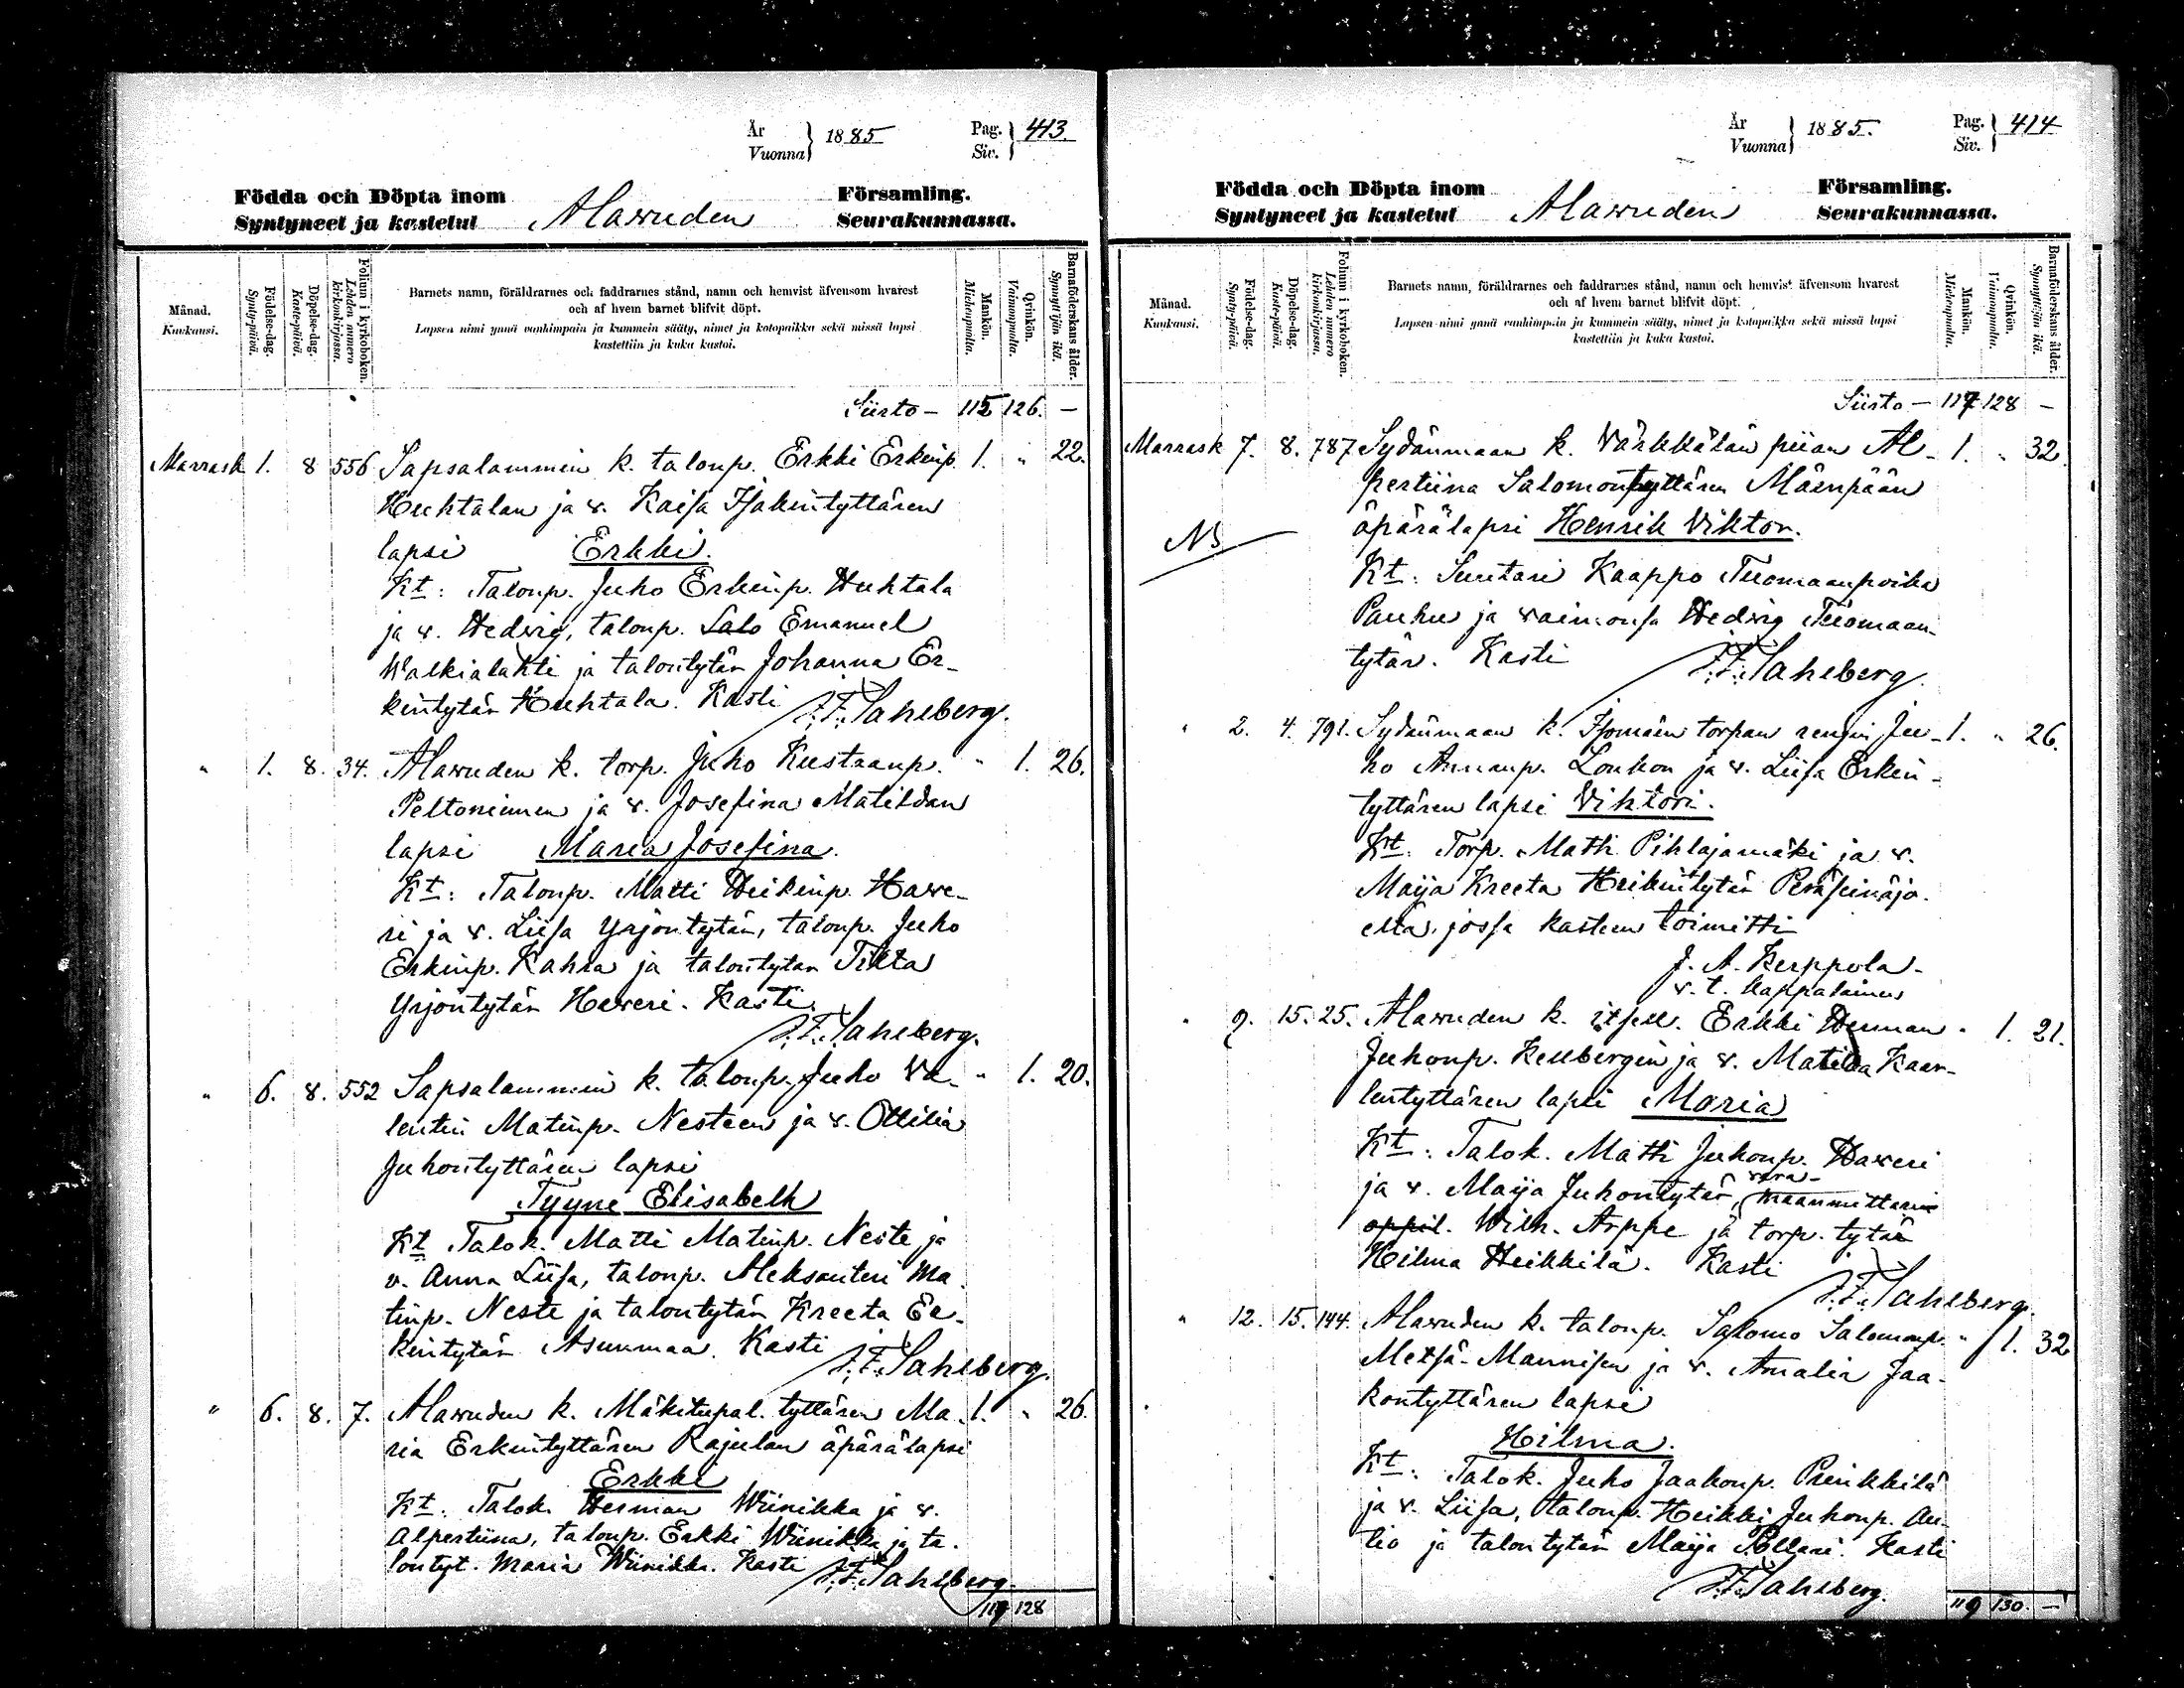 År
Vuonna
1885
Pag.
Siv.
413.
Födda och Döpta inom
Syntyneet ja kastetut
Alawuden
Församling.
Seurakunnassa.
Månad.
Kuukausi.
Födelse-dag.
Synty-päivä.
Döpelse-dag.
Kaste-päivä.
Folium i kyrkoboken.
Lehden numero kirkonkirjassa.
Barnets namn, föräldrarnes och faddrarnes stånd, namn och hemvist äfvensom hvarest
och af hvem barnet blifvit döpt.
Lapsen nimi ynnä vanhimpain ja kummein sääty, nimet ja kotopaikka sekä missä lapsi
kastettiin ja kuka kastoi.
Mankön.
Miehenpuolta.
Qvinkön.
Vaimonpuolta.
Barnaföderskans ålder.
Synnyttäjän ikä.
Siirto - 115 126. -
Marrask 1. 8 556 Sapsalammin k. talonp. Erkki Erkinp. 1. " 22.
Huhtalan ja v. Kaisa Isakintyttären
lapsi Erkki.
Kt: Talonp. Juho Erkinp. Huhtala
ja v. Hedvig, talonp. Salo Emanuel
Walkialahti ja talontytär Johanna Er-
kintytär Huhtala. Kasti
F. F. Sahlberg.
" 1. 8. 34. Alawuden k. torp. Juho Kustaanp. " 1. 26.
Peltoniemen ja v. Josefina Matildan
lapsi Maria Josefina.
Kt: Talonp. Matti Heikinp. Hawe-
ri ja v. Liisa Yrjöntytär, talonp. Juho
Erkinp. Kahra ja talontytär Fikta
Yrjöntytär Haweri. Kasti
F. F. Sahlberg.
" 6. 8. 552 Sapsalammin k. talonp. Juho Va- " 1. 20.
lentin Matinp. Nesteen ja v. Ottilia
Juhontyttären lapsi
Tyyne Elisabeth
Kt Talok. Matti Matinp. Neste ja
v. Anna Liisa, talonp. Aleksanteri Ma-
tinp. Neste ja talontytär Kreeta Er-
kintytär Asunmaa. Kasti
F. F. Sahlberg.
" 6. 8. 7. Alawuden k. Mäkitupal. tyttären Ma- 1. " 26.
ria Erkintyttären Rajulan äpärälapsi
Erkki
Kt: Talok. Herman Wiinikka ja v.
Alpertiina, talonp. Erkki Wiinikka ja ta-
lontyt. Maria Wiinikka. Kasti
F. F. Sahlberg.
117 128
År
Vuonna
1885.
Pag.
Siv.
414
Födda och Döpta inom
Syntyneet ja kastetut
Alawuden
Församling.
Seurakunnassa.
Månad.
Kuukausi.
Födelse-dag.
Synty-päivä.
Döpelse-dag.
Kaste-päivä.
Folium i kyrkoboken.
Lehden numero kirkonkirjassa.
Barnets namn, föräldrarnes och faddrarnes stånd, namn och hemvist äfvensom hvarest
och af hvem barnet blifvit döpt.
Lapsen nimi ynnä vanhimpain ja kummein sääty, nimet ja kotopaikka sekä missä lapsi
kastettiin ja kuka kastoi.
Mankön.
Miehenpuolta.
Qvinkön.
Vaimonpuolta.
Barnaföderskans ålder.
Synnyttäjän ikä.
Siirto - 117 128 -
Marrask 7. 8. 787 Sydänmaan k. Värkkälän piian Al- 1. " 32.
pertiina Salomontyttären Mäenpään
NB äpärälapsi Henrik Viktor.
Kt: Suutari Kaappo Tuomaanpoika
Pauhu ja vaimonsa Hedvig Tuomaan-
tytär. Kasti
F. F. Sahlberg.
" 2. 4. 791. Sydänmaan k. Isomäen torpan rengin Ju- 1. " 26.
ho Annanp. Loukon ja v. Liisa Erkin-
tyttären lapsi Viktori.
Kt: Torp. Matti Pihlajamäki ja v.
Maija Kreeta Heikintytär Peräseinäjo-
elta, jossa kasteen toimitti
J. A. Kerppola
v. t. kappalainen
" 9. 15. 25. Alawuden k. itsell. Erkki Herman " 1. 21.
Juhonp. Kellbergin ja v. Matilda Kaar-
lentyttären lapsi Maria
Kt: Talok. Matti Juhonp. Haweri
ja v. Maija Juhontytär, vara-
maanmittarin
oppil. Wilh. Arppe ja torp. tytär
Hilma Heikkilä. Kasti
F. F. Sahlberg.
" 12. 15. 144. Alawuden k. talonp. Salomo Salomonp. " 1. 32
Metsä-Mannisen ja v. Amalia Jaa-
kontyttären lapsi
Hilma.
Kt: Talok. Juho Jaakonp. Prinkkilä
ja v. Liisa, talonp. Heikki Juhonp. Au-
tio ja talontytär Maija Pollari. Kasti
F. F. Sahlberg.
119 130. -